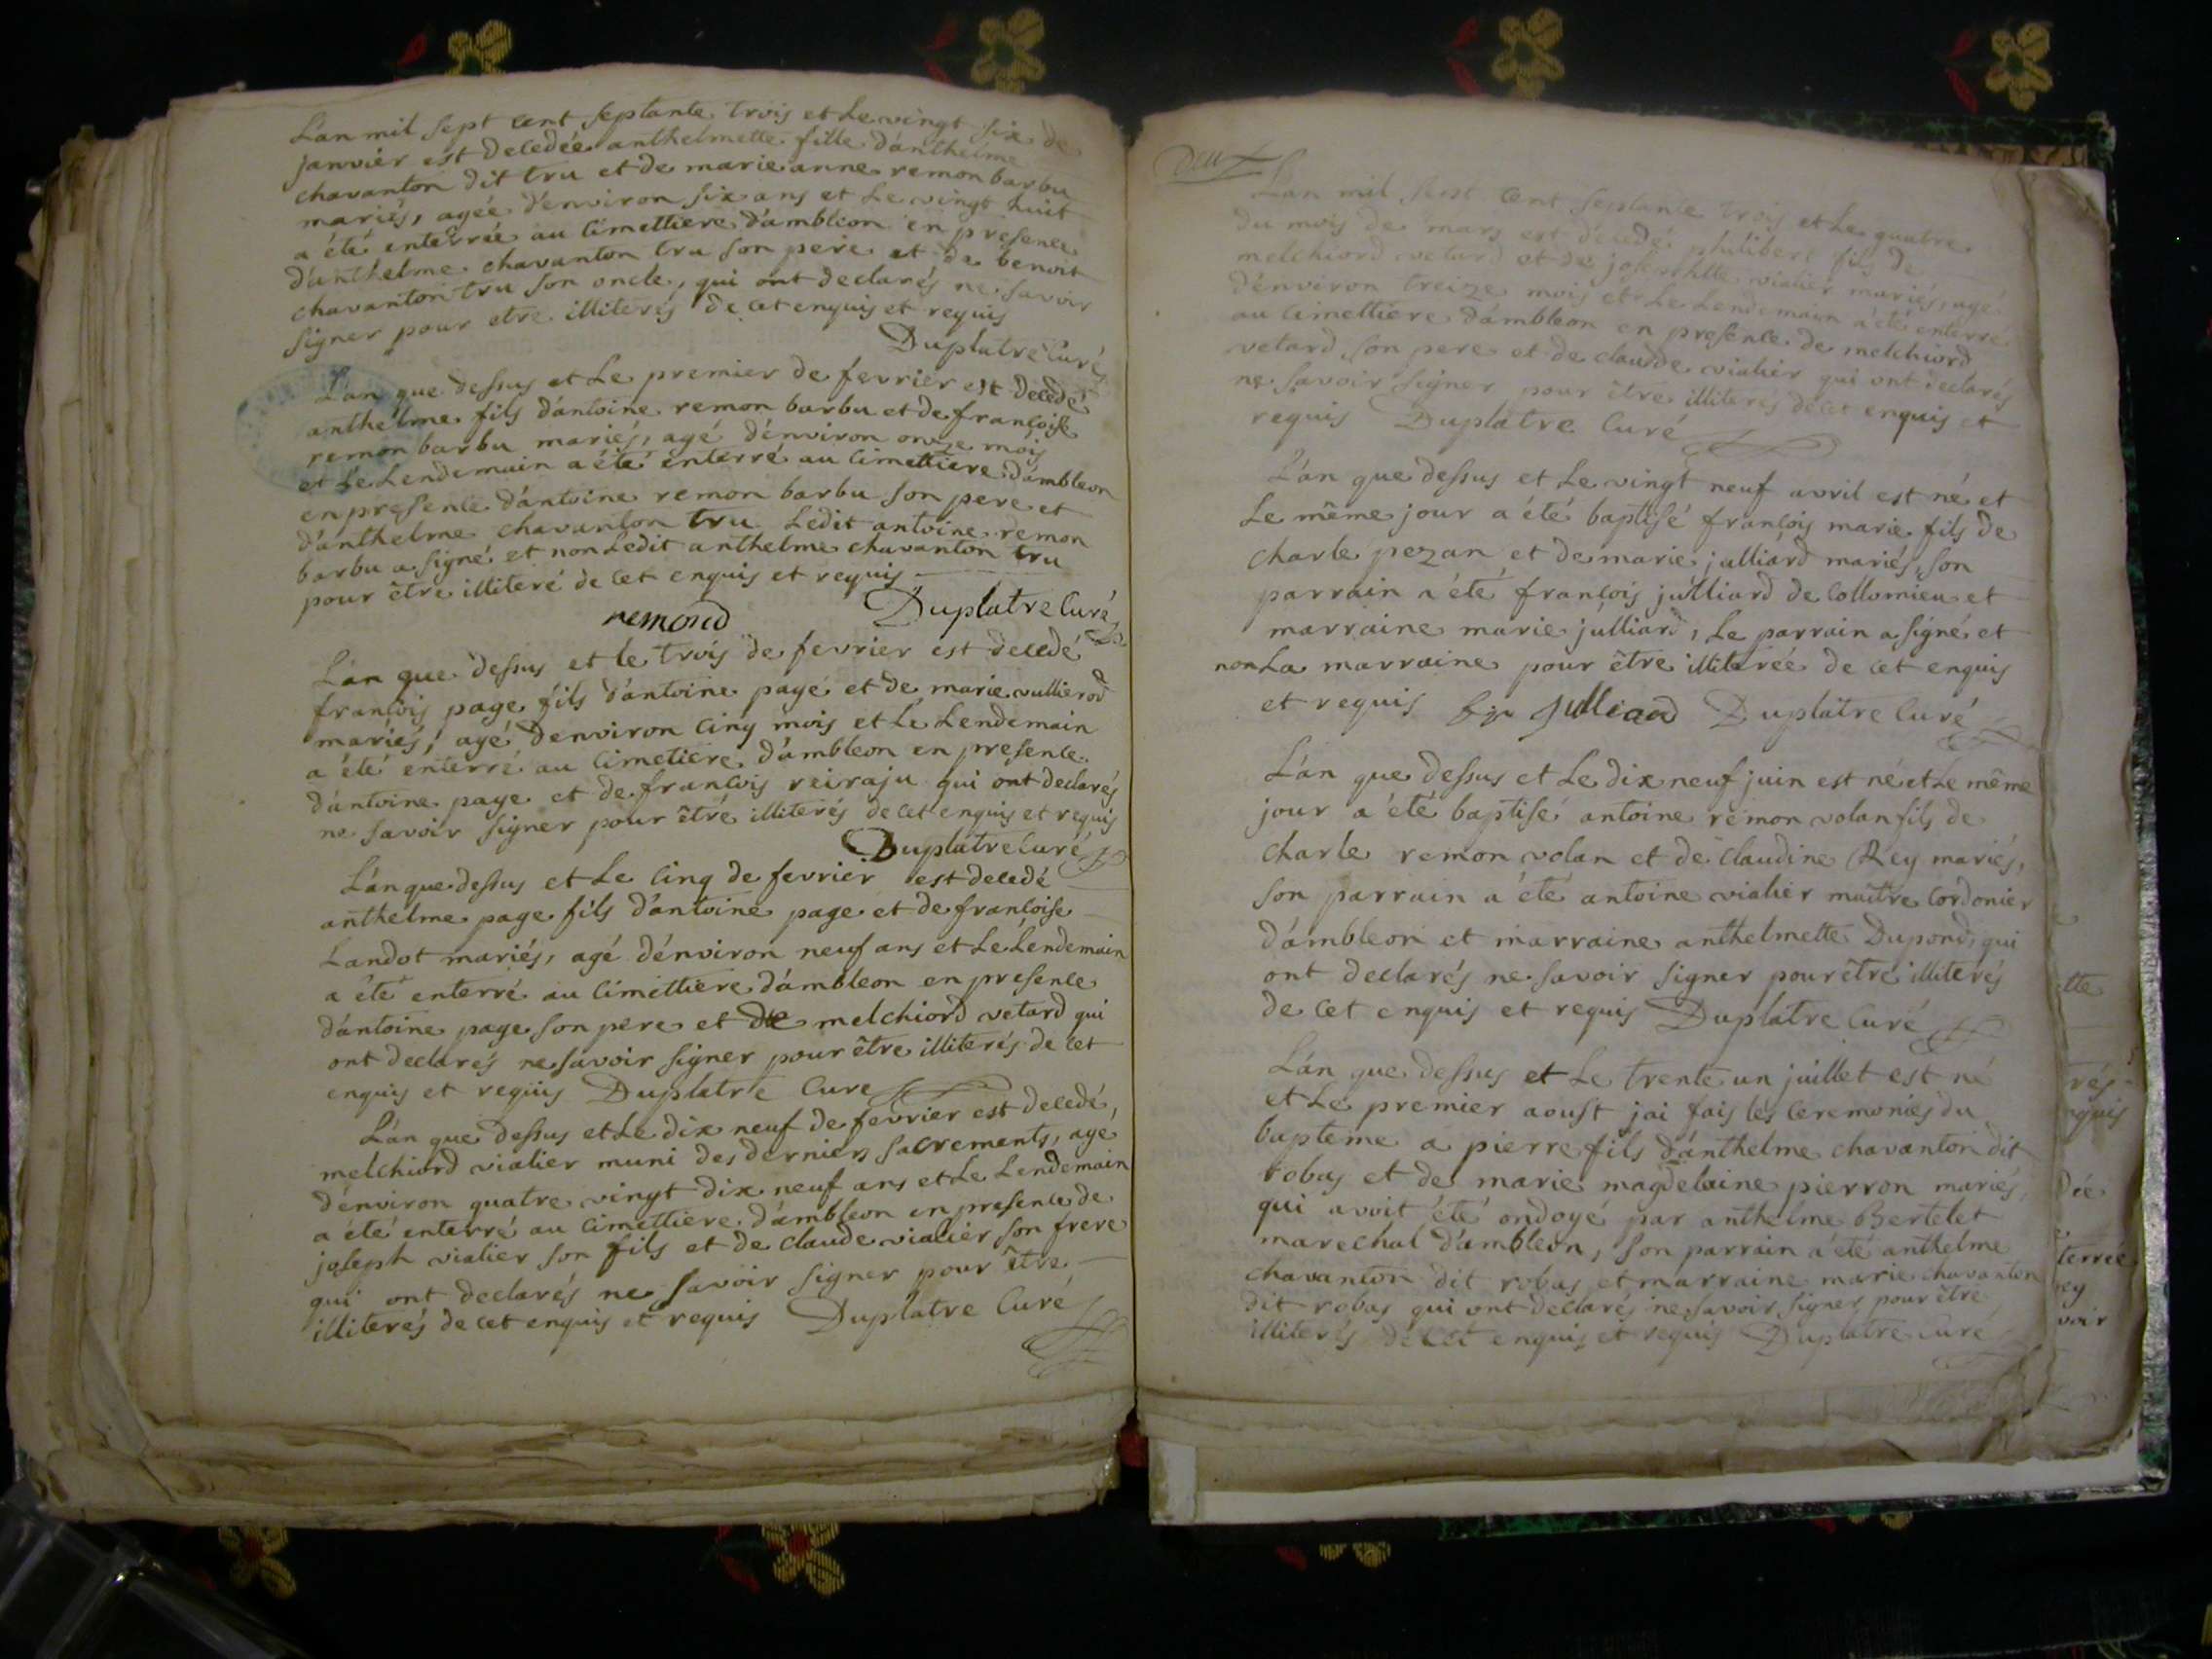 L'an mil sept cent septante trois et Le vingt six de
janvier est decedée anthelmette fille d'anthelme
chavanton dit tru et de marie anne remon barbu
mariés, agée d'environ six ans et Le vingt huit
a été enterrée au Cimettiere d'ambleon en presence
d'anthelme chavanton tru son pere et de benoit
chavanton tru son oncle, qui ont declarés ne savoir
signer pour etre illiterés de cet enquis et requis
Duplatre Curé
L'an que dessus et Le premier de fevrier est decedé
anthelme fils d'antoine remon barbu et de françoise
remon barbu mariés, agé d'environ onze mois
et Le Lendemain a été enterré au Cimettiere d'ambleon
en presence d'antoine remon barbu son pere et
d'anthelme chavanton tru Ledit antoine remon
barbu a signé et non Ledit anthelme chavanton tru
pour être illiteré de cet enquis et requis
remond Duplatre Curé
L'an que dessus et le trois de fevrier est decedé
françois page fils d'antoine page et de marie vullierod
mariés, agé d'environ Cinq mois et Le Lendemain
a été enterré au Cimetiere d'ambleon en presence
d'antoine page et de françois reiraju qui ont declarés
ne savoir signer pour être illiterés de cet enquis et requis
Duplatre Curé
L'an que dessus et Le Cinq de fevrier est decedé
anthelme page fils d'antoine page et de françoise
Landot mariés, agé d'environ neuf ans et Le Lendemain
a été enterré au Cimettiere d'ambleon en presence
d'antoine page son pere et de melchiord vetard qui
ont declarés ne savoir signer pour être illiterés de cet
enquis et requis Duplatre Curé
L'an que dessus et Le dix neuf de fevrier est decedé,
melchiord vialier muni des derniers sacrements, agé
d'environ quatre vingt dix neuf ans et Le Lendemain
a été enterré au Cimettiere d'ambleon en presence de
joseph vialier son fils et de claude vialier son frere
qui ont declarés ne savoir signer pour être
illiterés de cet enquis et requis Duplatre Curé
Deux
L'an mil sept cent septante trois et Le quatre
du mois de mars est decedé philibert fils de
melchiord vetard et de josephtte vialier mariés, agé
d'environ treize mois et Le Lendemain a été enterré
au Cimettiere d'ambleon en presence de melchiord
vetard son pere et de claude vialier qui ont declarés
ne savoir signer pour être illiterés de cet enquis et
requis Duplatre Curé
L'an que dessus et Le vingt neuf avril est né et
Le même jour a été baptisé françois marie fils de
charle pezan et de marie julliard mariés, son
parrain a été françois julliard de Collomieu et
marraine marie julliard, Le parrain a signé et
non La marraine pour être illiterée de cet enquis
et requis Julliard Duplatre Curé
L'an que dessus et Le dix neuf juin est né et Le même
jour a été baptisé antoine remon volan fils de
charle remon volan et de claudine Rey mariés,
son parrain a été antoine vialier maître Cordonier
d'ambleon et marraine anthelmette Dupond, qui
ont declarés ne savoir signer pour être illiterés
de cet enquis et requis Duplatre Curé
L'an que dessus et Le trente un juillet est né
et Le premier aoust jai fais les Ceremonies du
bapteme a pierre fils d'anthelme chavanton dit
robas et de marie magdelaine pierron mariés,
qui avoit été ondoyé par anthelme Bertelet
marechal d'ambleon, son parrain a été anthelme
chavanton dit robas et marraine marie chavanton
dit robas qui ont declarés ne savoir signer pour être
illiterés de cet enquis et requis Duplatre Curé
tte
rés
nquis
dée
terrée
rey
voir